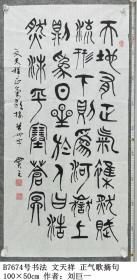 天地有正氣雜然賦
流形下則為河嶽上
則為日星於人曰浩
然沛乎塞蒼冥
文天祥正氣歌摘
B7674号书法 文天祥 正气歌摘句
100×50cm 作者：刘巨一